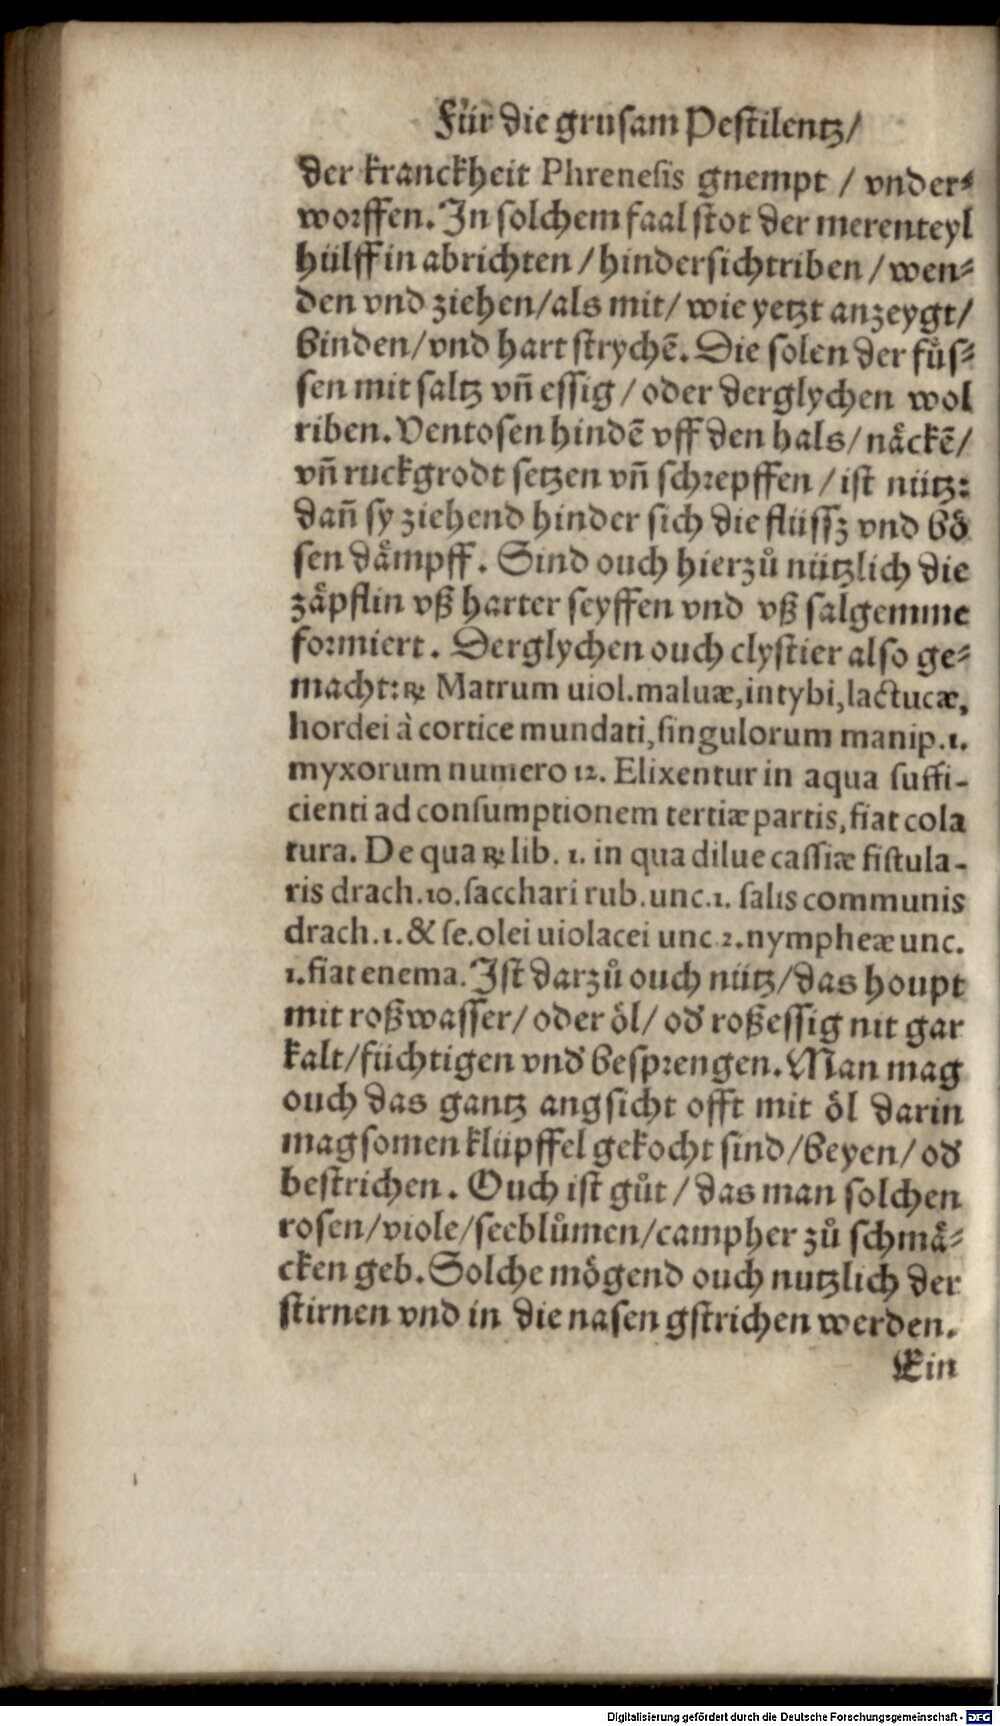 Für die grusam Pestilentz/
der kranckheit Phrenesis gnempt / vnder⸗
worffen. In solchem faal stot der merenteyl
hülff in abrichten / hindersichtriben / wen⸗
den vnd ziehen/als mit/ wie yetzt anzeygt/
binden/vnd hart strychẽ. Die solen der fuͤs⸗
sen mit saltz vñ essig / oder derglychen wol
riben. Ventosen hindẽ vff den hals/naͤckẽ/
vñ ruckgrodt setzen vñ schrepffen / ist nütz:
dañ sy ziehend hinder sich die flüssz vnd boͤ
sen daͤmpff. Sind ouch hierzů nützlich die
zaͤpflin vß harter seyffen vnd vß salgemme
formiert. Derglychen ouch clystier also ge⸗
macht: ℞ Matrum uiol.maluæ,intybi,lactucæ,
hordei à cortice mundati,singulorum manip.1.
myxorum numero 12. Elixentur in aqua suffi-
cienti ad consumptionem tertiæ partis,fiat cola
tura. De qua ℞ lib. 1. in qua dilue cassiæ fistula-
ris drach.10.sacchari rub.unc.1. salis communis
drach.1.& se.olei uiolacei unc 2.nympheæ unc.
1.fiat enema. Ist darzů ouch nütz/das houpt
mit roßwasser/ oder öl/ oð roßessig nit gar
kalt/füchtigen vnd besprengen. Man mag
ouch das gantz angsicht offt mit öl darin
magsomen klüpffel gekocht sind/beyen/ oð
bestrichen. Ouch ist gůt / das man solchen
rosen/viole/seeblůmen/campher zů schmaͤ⸗
cken geb. Solche moͤgend ouch nutzlich der
stirnen vnd in die nasen gstrichen werden.
Ein
Digitalisierung gefördert durch die Deutsche Forschungsgemeinschaft - DFG